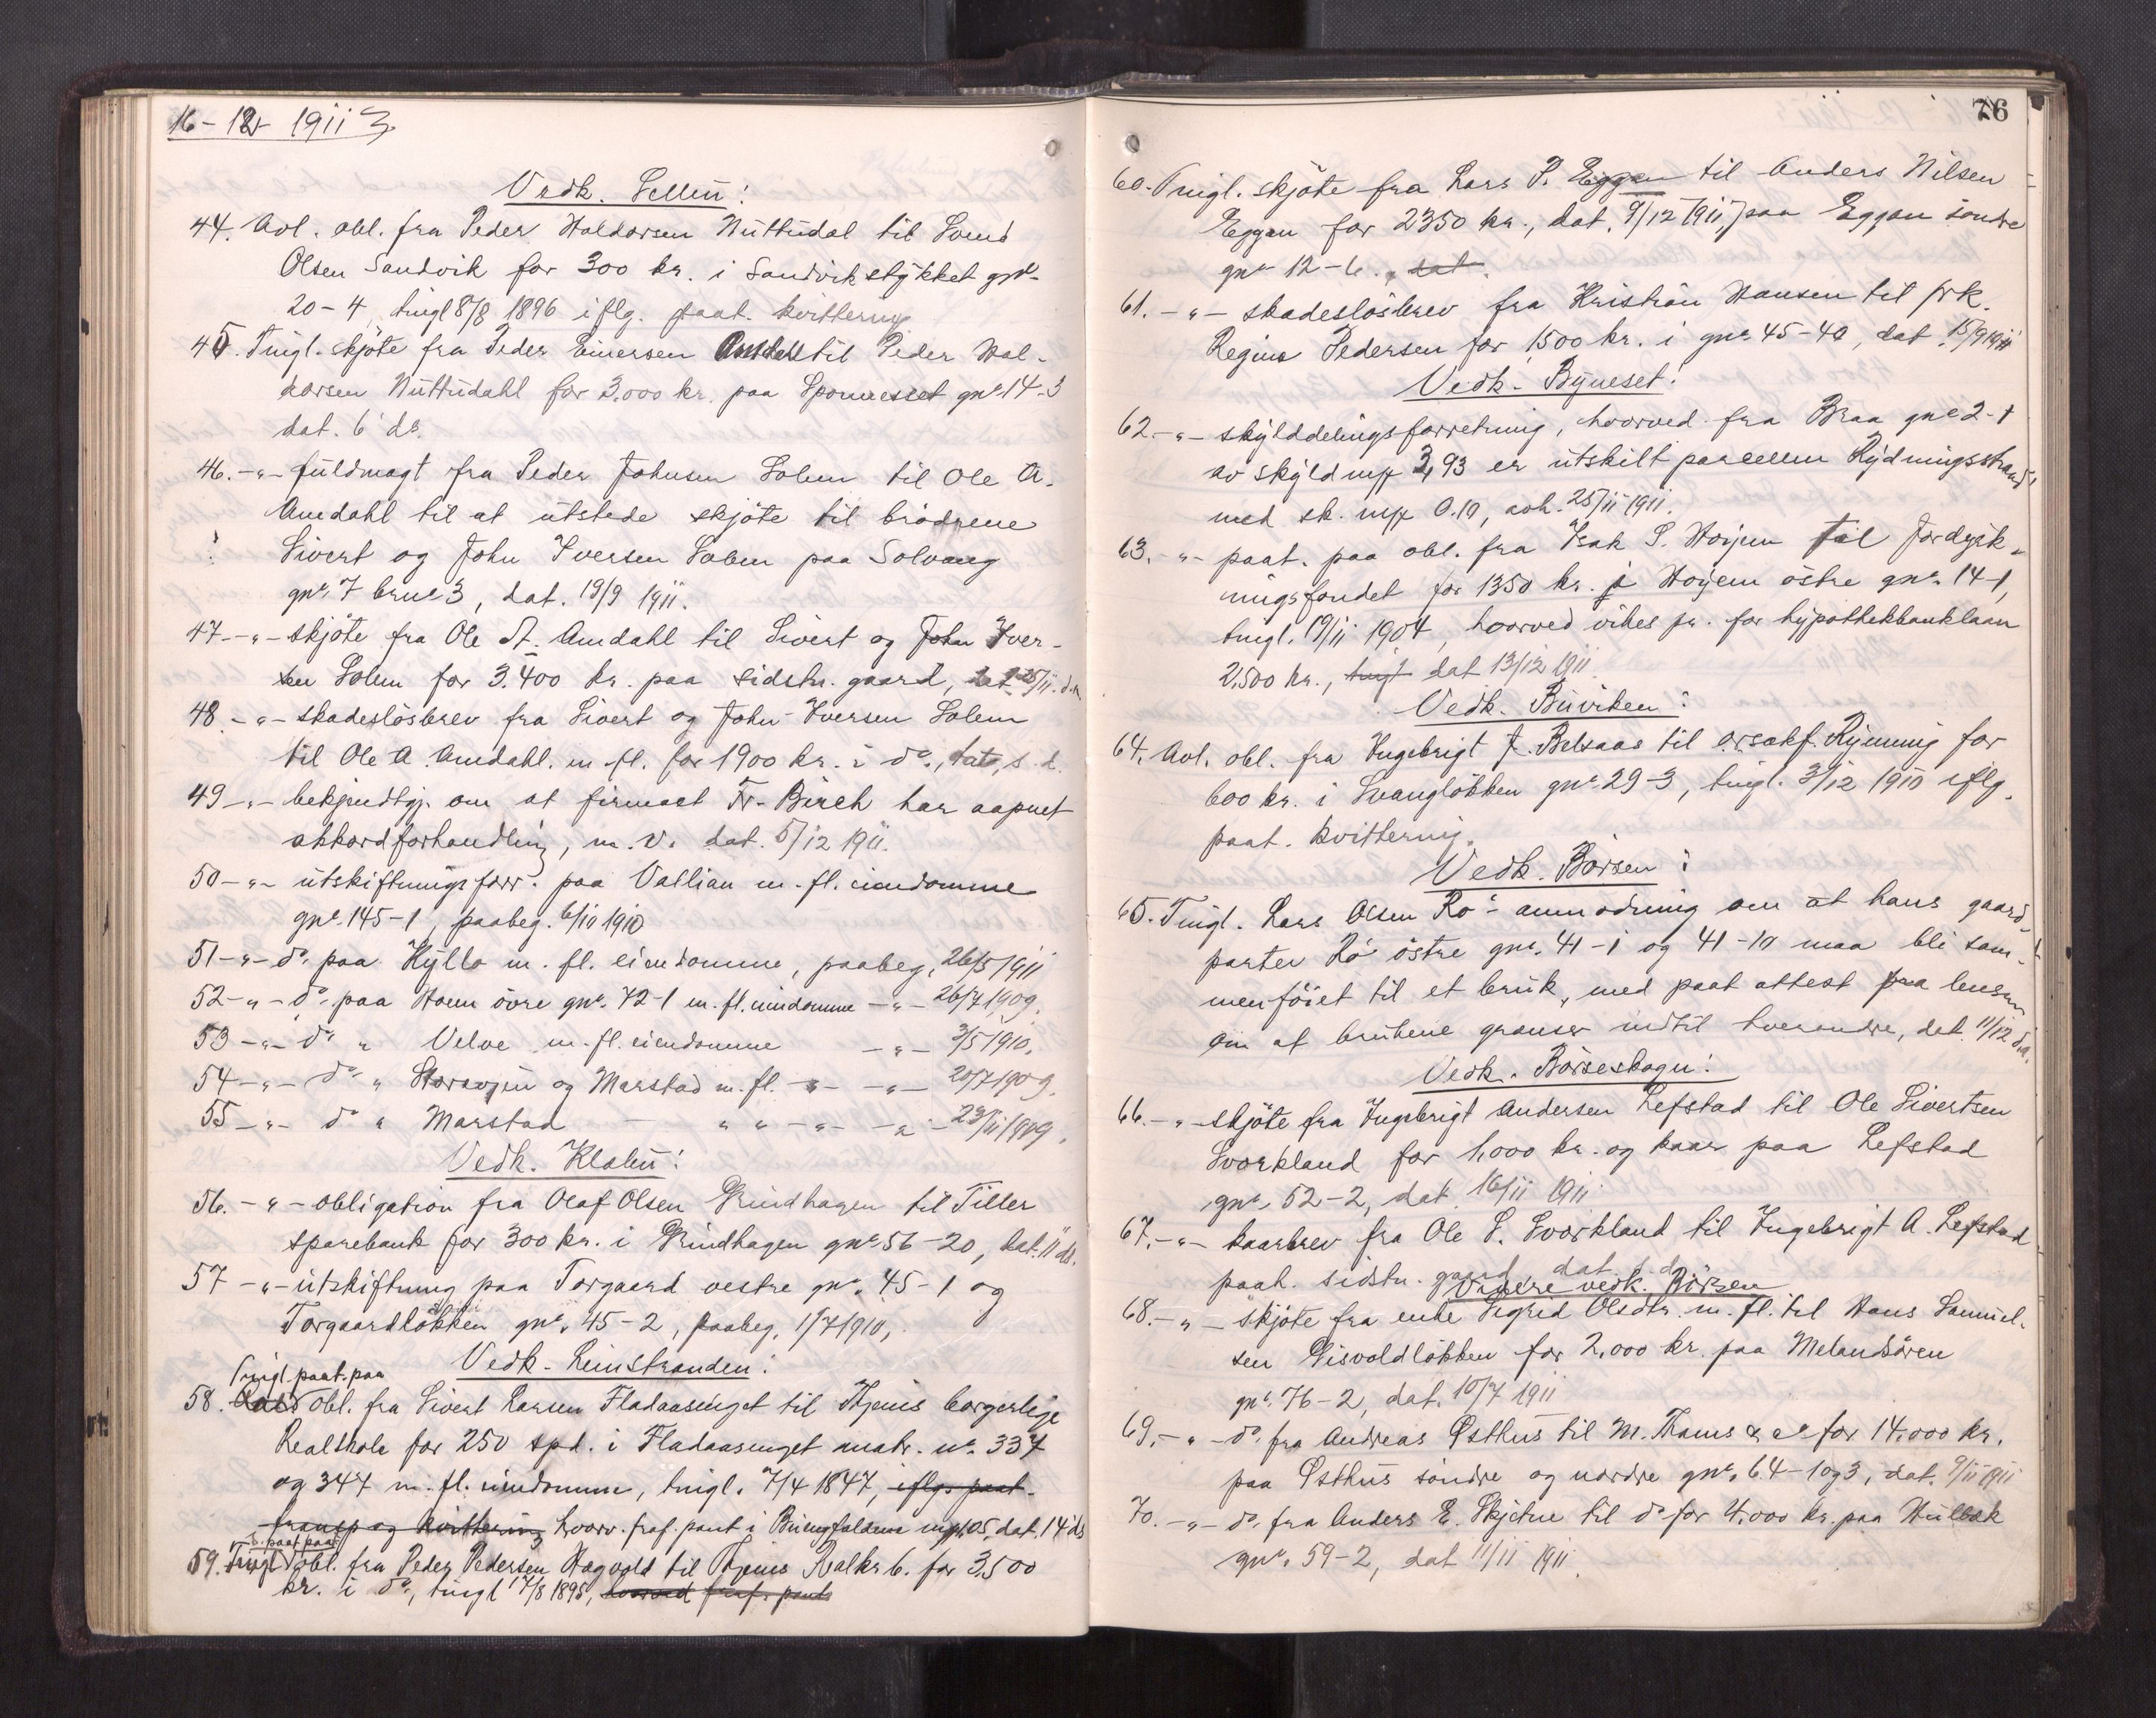 16-12-1911
Vedk. Selbu:
44. Avl. obl. fra Peder Haldorsen Nuttudal til Svend
Olsen Sandvik for 300 kr. i Sandvikstykket gnr
20-4, tingl 8/8 1896 iflg. paat. kvittering
45. Tingl. skjöte fra Peder Einersen til Peder Hal-
dorsen Nuttudahl for 3.000 kr. paa gnr. 14-3
dat. 6 ds.
46. -"- fuldmagt fra Peder Johnsen Solem til Ole A.
Amdahl til at utstede skjöte til brödrene
Sivert og John Iversen Solem paa Solvang
gnr. 7 brno 3, dat. 19/9 1911.
47 -"- skjöte fra Ole A. Amdahl til Sivert og John Iver-
sen Solem for 3.400 kr. paa sidstn. gaard, dat 25/11. d.a.
48 -"- skadeslösbrev fra Sivert og John Iversen Solem
til Ole A. Amdahl. m fl. for 1900 kr. i do., dat, s. d.
49 -"- bekjendtgj. om at firmaet Fr. Birch har aapnet
akkordforhandling, m. v. dat. 5/12 1911.
50 -"- utskiftningsforr. paa Vatlian m. fl. eiendomme
gnr. 145-1, paabeg. 6/10 1910
51 -"- do. paa Hyllo m. fl. eiendomme, paabeg. 26/5 1911
52 -"- do. paa Hoem övre gnr. 72-1 m. fl. eiendomme -"- 26/7 1909.
53 -"- do " Velve m. fl. eiendomme -"- 3/5 1910.
54 -"- do " og Marstad m. fl. -"- -"- 20/7 1909.
55 -"- do " Marstad " " -"- -"- 23/11 1909.
Vedk. Klæbu:
56. -"- obligation fra Olaf Olsen Grindhagen til Tiller
sparebank for 300 kr. i Grindhagen gnr 56-20, dat. 11 ds.
57 -"- utskiftning paa Torgaard vestre gnr. 45-1 og
Torgaardlökken gnr. 45-2, paabeg. 1/7 1910,
Vedk. Leinstranden:
Tingl. paat. paa
58. obl. fra Sivert Larsen Fladaasenget til Thjems borgerlige
Realskole for 250 spd. i Fladaasenget matr. no. 337
og 347 m. fl. eiendomme, tingl. 7/4 1847, iflg. paat.
transp og kvittering hvorv. fraf. pant i 1,05, dat. 14 ds
paat. paa
59. Tingl obl. fra Peder Pedersen Hagvold til Thjems for 3.500
kr. i do, tingl 17/8 1895, hvorved fraf. pant
76
60. Tingl. skjöte fra Lars P. Eggen til Anders Nilsen
Eggen for 2350 kr., dat. 9/12 1911, paa Eggen söndre
gnr 12-6., dat.
61. -"- skadeslösbrev fra Kristian Hansen til frk.
Regine Pedersen for 1500 kr. i gnr. 45-40, dat. 15/9 1911
Vedk. Byneset:
62. -"- skylddelingsforretning, hvorved fra Braa gnr 2-1
av skyld mrk 3,93 er utskilt parcellen Rydningsstrand,
med sk. mrk 0.10, avh. 25/11 1911.
63. -"- paat. paa obl. fra Isak S. Höijem til Jorddyrk-
ningsfondet for 1350 kr. i Höijem östre gnr. 14-1,
tingl. 19/11 1904, hvorved vikes pr. for hypothekbanklaan
2.500 kr., tingl dat 13/12 1911
Vedk. Buviken:
64. Avl. obl. fra Ingebrigt J. Belsaas til o.r.sakf. Rynning for
600 kr. i Svanglökken gnr. 29-3, tingl. 3/12 1910 iflg.
paat. kvittering.
Vedk. Börsen:
65. Tingl. Lars Olsen Rö's anmodning om at hans gaard-
parter Rö östre gnr. 41-1 og 41-10 maa bli sam-
menföiet til et bruk, med paat attest fra lensm
om at brukene grænser indtil hverandre, dat. 11/12 d.a.
Vedk. Börseskogn:
66. -"- skjöte fra Ingebrigt Andersen Lefstad til Ole Sivertsen
Svorkland for 1.000 kr. og kaar paa Lefstad
gnr. 52-2, dat. 16/11 1911
67. -"- kaarbrev fra Ole S. Svorkland til Ingebrigt A. Lefstad
paah. sidstn. gaard dat. s. d.
Videre vedk. Börsen
68. -"- skjöte fra enke Sigrid Olsdtr. m. fl. til Hans Samuel-
sen Gisvoldlökken for 2.000 kr. paa Melandsören
gnr. 76-2, dat. 10/7 1911
69. -"- do. fra Andreas Östhus til M. Thams & Co for 14.000 kr.
paa Östhus söndre og nordre gnr. 64-1 og 3, dat. 9/11 1911
70. -"- do. fra Anders E. Skjetne til do for 4.000 kr. paa Hulbak
gnr. 59-2, dat 11/11 1911.